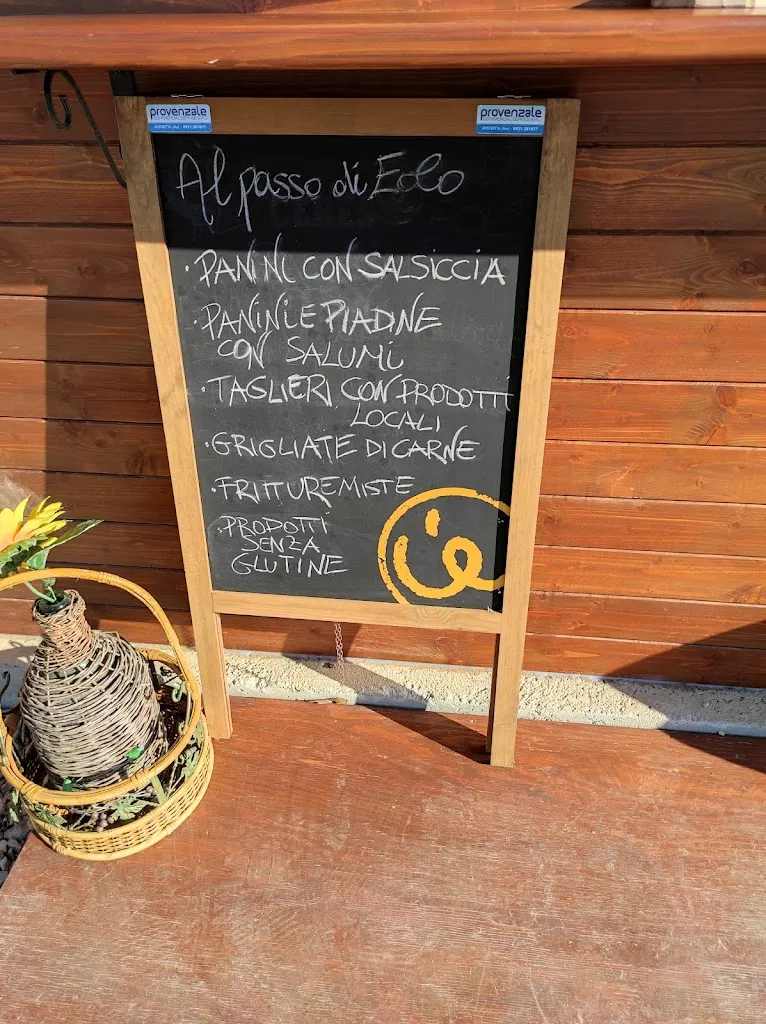 provenzale
provenzale
Al passo di Eolo
· PANINI CON SALSICCIA
· PANINI E PIADINE
CON SALUMI
· TAGLIERI CON PRODOTTI
LOCALI
· GRIGLIATE DI CARNE
· FRITTURE MISTE
· PRODOTTI
SENZA
GLUTINE